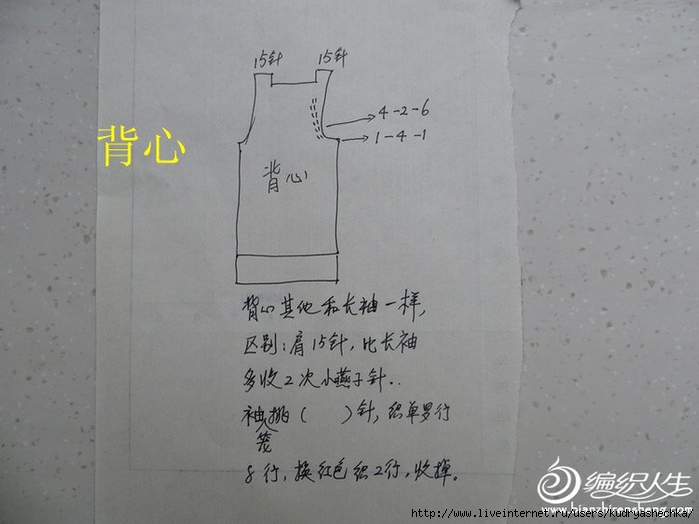 15针 15针
4-2-6
1-4-1
背心
背心
背心其他和长袖一样,
区别:肩15针,比长袖
多收2次小燕子针..
袖笼挑( )针,织单罗行
8行,换红色织2行,收掉。
编织人生
www.bianzhirensheng.com
http://www.liveinternet.ru/users/kudryashechka/